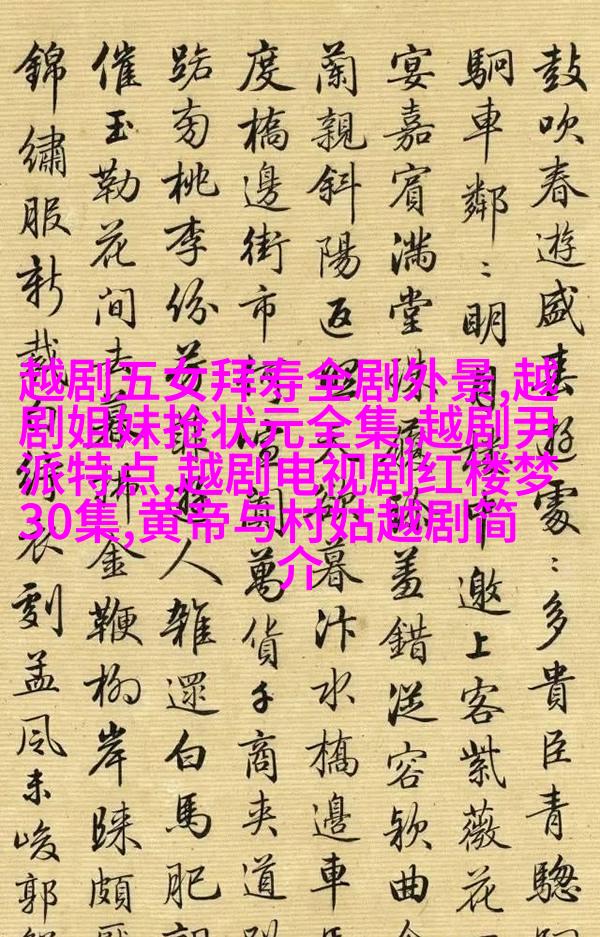 鼓吹春遊盛遊處:多貴臣青驄
駉車鄰:明月樓中邀上客紫薇花
宴嘉賓滿堂珠羞錯從容歌曲
蘭親斜陽返人欲暮汴水橋邊車
度橋邊街市萬貨千商夾道
桃李份芳人雜還白馬肥
催玉勒花間去拂金鞭柳岸踈頗
錦繡服新裁白衣剗孟風未峻郭
越剧五女拜寿全剧外景,越
剧姐妹抢状元全集,越剧尹
派特点,越剧电视剧红楼梦
30集,黄帝与村姑越剧简
介